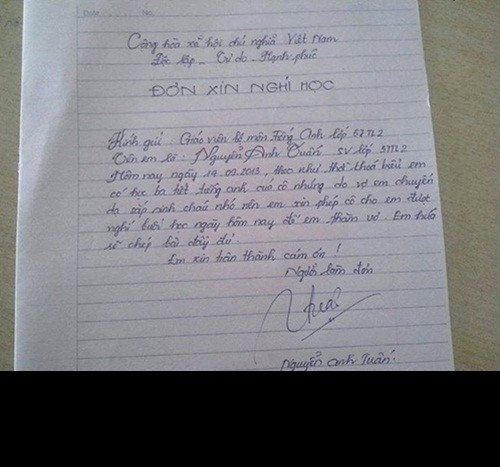 Date No.
Cộng hòa xã hội chủ nghĩa Việt Nam
Độc lập - Tự do - Hạnh phúc
ĐƠN XIN NGHỈ HỌC
Kính gửi : Giáo viên bộ môn Tiếng Anh lớp 57TL2
Tên em là : Nguyễn Anh Tuấn SV lớp 57TL2
Hôm nay ngày 19.09.2013, theo như thời khoá biểu em
có học ba tiết tiếng anh của cô nhưng do vợ em chuyển
dạ sắp sinh cháu nhỏ nên em xin phép cô cho em được
nghỉ buổi học ngày hôm nay để em thăm vợ. Em hứa
sẽ chép bài đầy đủ.
Em xin chân thành cám ơn !
Người làm đơn
Nguyễn Anh Tuấn.